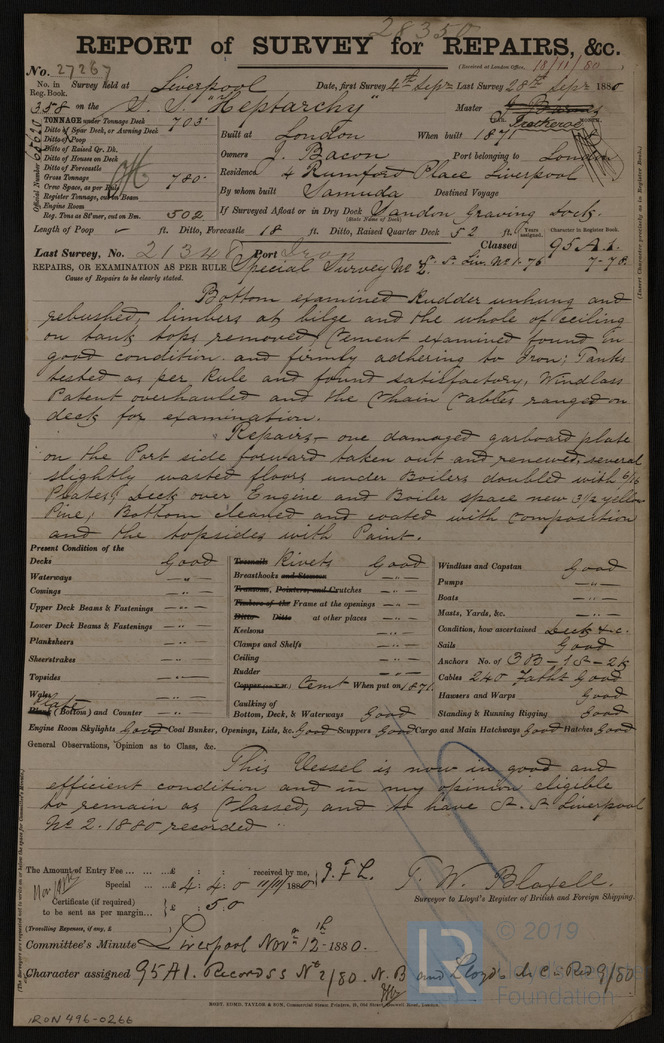 28350
REPORT of SURVEY for REPAIRS, &c.
(Received at London Office, 13/11/80)
No. 27267
No. in Reg. Book. Survey held at Liverpool Date, first Survey 4th Sepr Last Survey 28th Sepr 1880
358 on the S. S. "Heptarchy" Master
TONNAGE under Tonnage Deck 703
Ditto of Spar Deck, or Awning Deck
Ditto of Poop
Ditto of Raised Qr. Dk.
Ditto of House on Deck
Ditto of Forecastle
Gross Tonnage 780
Crew Space, as per Rule
Register Tonnage, cut on Beam
Engine Room
Reg. Tons as St'mer, cut on Bm. 502
Official Number
Built at London When built 1871
YEAR. MONTH.
Owners J. Bacon Port belonging to London
Residence 4 Rumford Place Liverpool
By whom built Samuda Destined Voyage
If Surveyed Afloat or in Dry Dock Sandon Graving Dock.
(State Name of Dock)
Length of Poop ft. Ditto, Forecastle 18 ft. Ditto, Raised Quarter Deck 52 ft. Years assigned. Character in Register Book.
Last Survey, No. 21348 Port Iron Classed 95A1.
REPAIRS, OR EXAMINATION AS PER RULE Special Survey No 2. S. S. Liv. No 1-76 7-78
Cause of Repairs to be clearly stated.
Bottom examined Rudder unhung and
rebushed, limbers at bilge and the whole of ceiling
on tank tops removed, Cement examined found in
good condition and firmly adhering to Iron; Tanks
tested as per Rule and found satisfactory, Windlass
Patent overhauled and the Chain Cables ranged on
deck for examination.
Repairs - one damaged garboard plate
on the Port side forward taken out and renewed, several
slightly wasted floors under Boilers doubled with 6/16
Plates, Deck over Engine and Boiler space new 3 1/2 yellow
Pine, Bottom cleaned and coated with Composition
and the topsides with Paint.
Present Condition of the
Decks Good
Waterways - " -
Comings - " -
Upper Deck Beams & Fastenings - " -
Lower Deck Beams & Fastenings - " -
Planksheers - " -
Sheerstrakes - " -
Topsides - " -
Wales
Plate
Plank (Bottom) and Counter - " -
Treenails Rivets Good
Breasthooks and Stemson - " -
Transoms, Pointers, and Crutches - " -
Timbers of the Frame at the openings - " -
Ditto Ditto at other places - " -
Keelsons - " -
Clamps and Shelfs - " -
Ceiling - " -
Rudder - " -
Copper (or Y.M.) Cemt When put on 1871.
Caulking of
Bottom, Deck, & Waterways Good
Windlass and Capstan Good
Pumps - " -
Boats - " -
Masts, Yards, &c. - " -
Condition, how ascertained Deck &c.
Sails Good
Anchors No. of 3B-1S-2K
Cables 240 Faths Good
Hawsers and Warps Good
Standing & Running Rigging Good
Engine Room Skylights Good Coal Bunker, Openings, Lids, &c. Good Scuppers Good Cargo and Main Hatchways Good Hatches Good
General Observations, Opinion as to Class, &c.
This Vessel is now in good and
efficient condition and in my opinion eligible
to remain as Classed, and to have S. S. Liverpool
No 2. 1880 recorded
The Amount of Entry Fee ... ... £ : : received by me,
Special ... ... £ 4 : 4 : 0 11/11/1880 J.F.L.
Certificate (if required) to be sent as per margin... £ 5.0
(Travelling Expenses, if any, £ )
T. W. Blaxell.
Surveyor to Lloyd's Register of British and Foreign Shipping.
Committee's Minute Liverpool Novr 12th 1880.
Character assigned 95A1. Record SS No 2/80. N.B and Lloyd's M.C in Red 9/80
MORT, BOND, TAYLOR & SON, Commercial Steam Printers
IRON 496-0266
LR
© 2019
Foundation